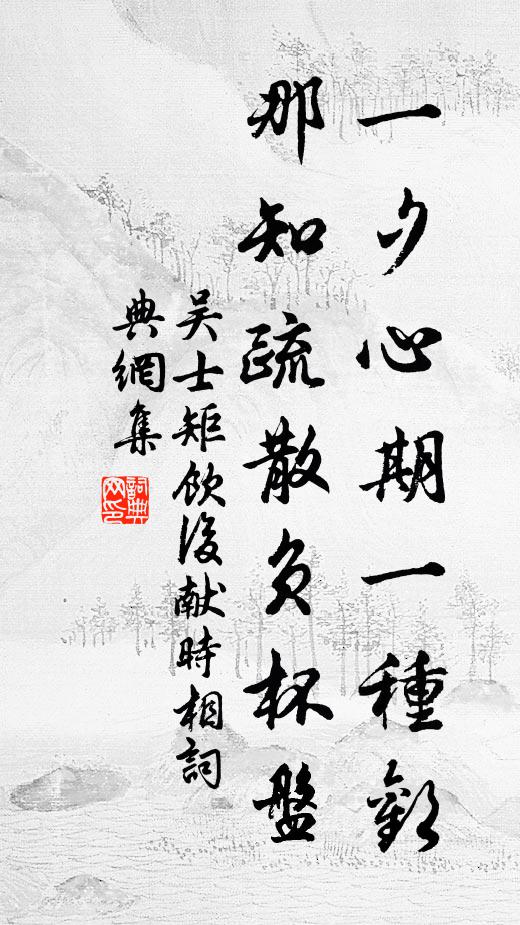 一夕心期一種歡
那知疏散負杯盤
吴士矩飲後献時相詞
典網集
詞典
网印